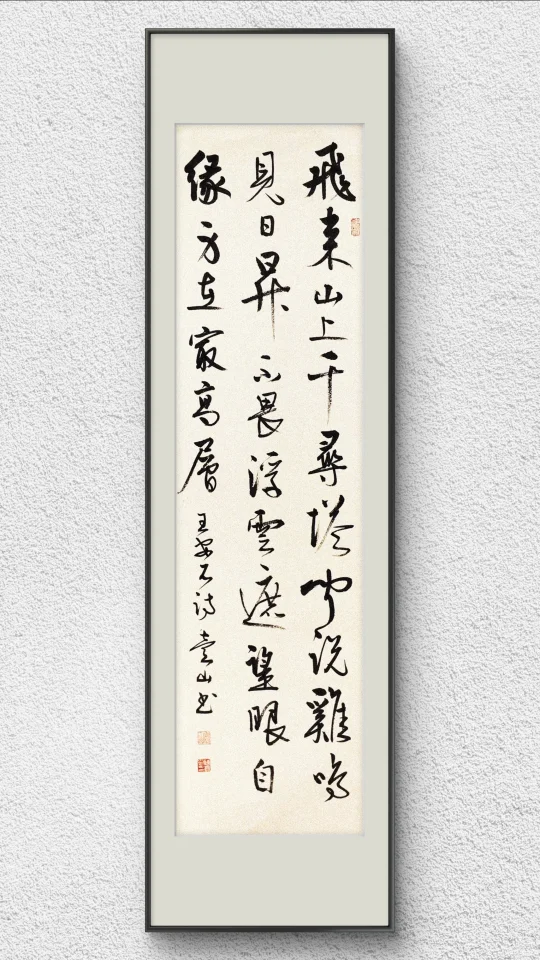 飛來山上千尋塔聞說雞鳴
見日昇不畏浮雲遮望眼自
緣身在最高層 王安石詩 山书